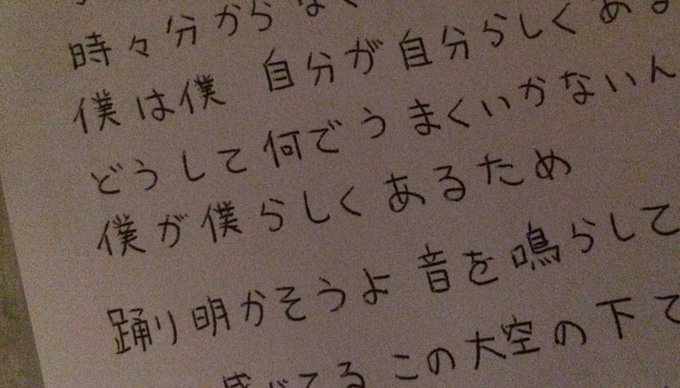 時々分からなく
僕は僕 自分が自分らしくある
どうして何でうまくいかないん
僕が僕らしくあるため
踊り明かそうよ 音を鳴らして
感じてる この大空の下で